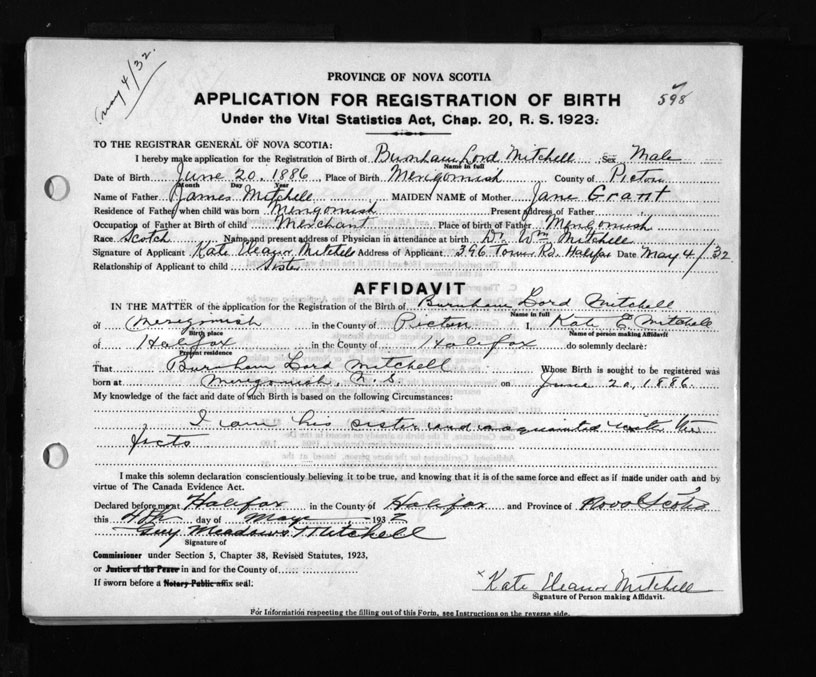 May 4/32.
PROVINCE OF NOVA SCOTIA
APPLICATION FOR REGISTRATION OF BIRTH 598
Under the Vital Statistics Act, Chap. 20, R. S. 1923.
TO THE REGISTRAR GENERAL OF NOVA SCOTIA:
I hereby make application for the Registration of Birth of Burnham Lord Mitchell Sex Male
Name in full
Date of Birth June 20. 1886 Place of Birth Merigomish County of Pictou
Month Day Year
Name of Father James Mitchell MAIDEN NAME of Mother Jane Grant
Residence of Father when child was born Merigomish Present address of Father
Occupation of Father at Birth of child Merchant Place of birth of Father Merigomish
Race Scotch Name and present address of Physician in attendance at birth Dr. Wm Mitchell
Signature of Applicant Kate Eleanor Mitchell Address of Applicant 396 Tower Rd. Halifax Date May 4/32
Relationship of Applicant to child Sister
AFFIDAVIT
IN THE MATTER of the application for the Registration of the Birth of Burnham Lord Mitchell
Name in full
of Merigomish in the County of Pictou I, Kate E. Mitchell
Birth place Name of person making Affidavit
of Halifax in the County of Halifax do solemnly declare:
Present residence
That Burnham Lord Mitchell Whose Birth is sought to be registered was
born at Merigomish, N. S. on June 20, 1886
My knowledge of the fact and date of such Birth is based on the following Circumstances:
I am his sister and am aquainted with the
facts
I make this solemn declaration conscientiously believing it to be true, and knowing that it is of the same force and effect as if made under oath and by
virtue of The Canada Evidence Act.
Declared before me at Halifax in the County of Halifax and Province of Nova Scotia
this 4th day of May 1932
Guy Meadows Mitchell
Signature of
Commissioner under Section 5, Chapter 38, Revised Statutes, 1923,
or Justice of the Peace in and for the County of
If sworn before a Notary Public affix seal:
x Kate Eleanor Mitchell
Signature of Person making Affidavit.
For Information respecting the filling out of this Form, see Instructions on the reverse side.